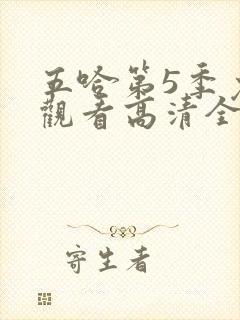 五哈第5季
觀看高清全
寄生者